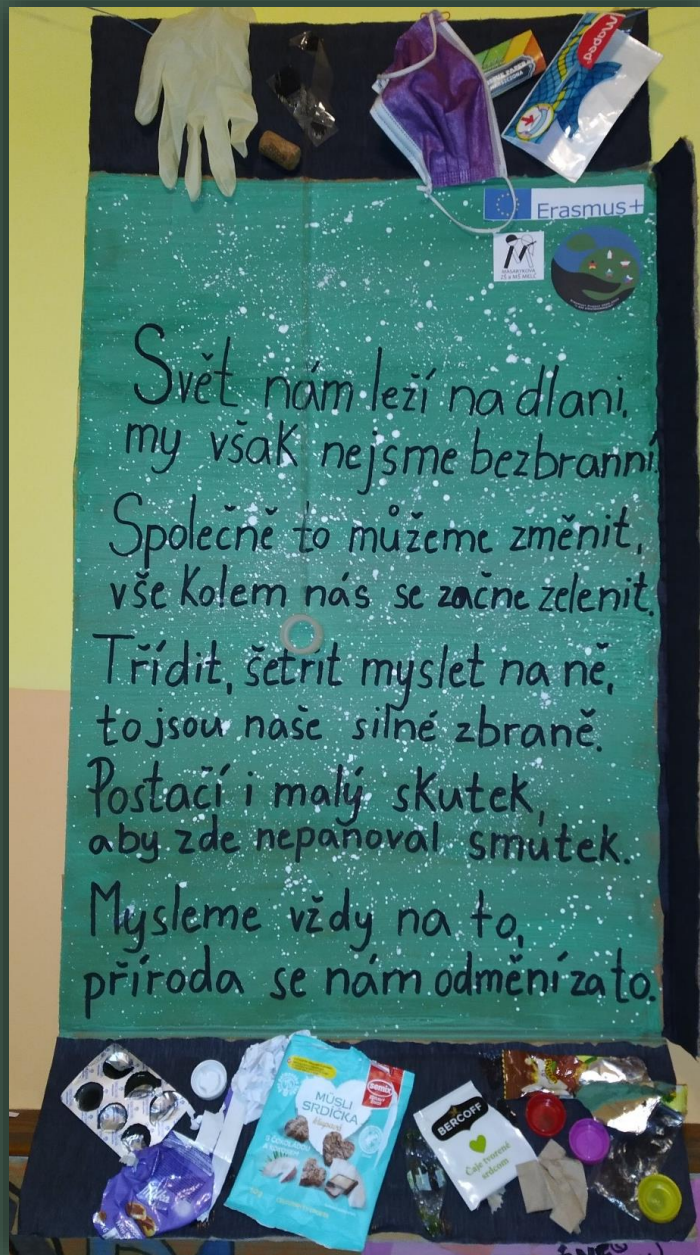 Maped
Erasmus+
MASARYKOVA
Svět nám leží na dlani,
my však nejsme bezbranní.
Společně to můžeme změnit,
vše kolem nás se začne zelenit.
Třídit, šetrit myslet na ně,
to jsou naše silné zbraně.
Postačí i malý skutek,
aby zde nepanoval smutek.
Mysleme vždy na to,
příroda se nám odmění za to.
semix
MÜSLI
SRDÍČKA
BERCOFF
Čaje tvorené
srdcom